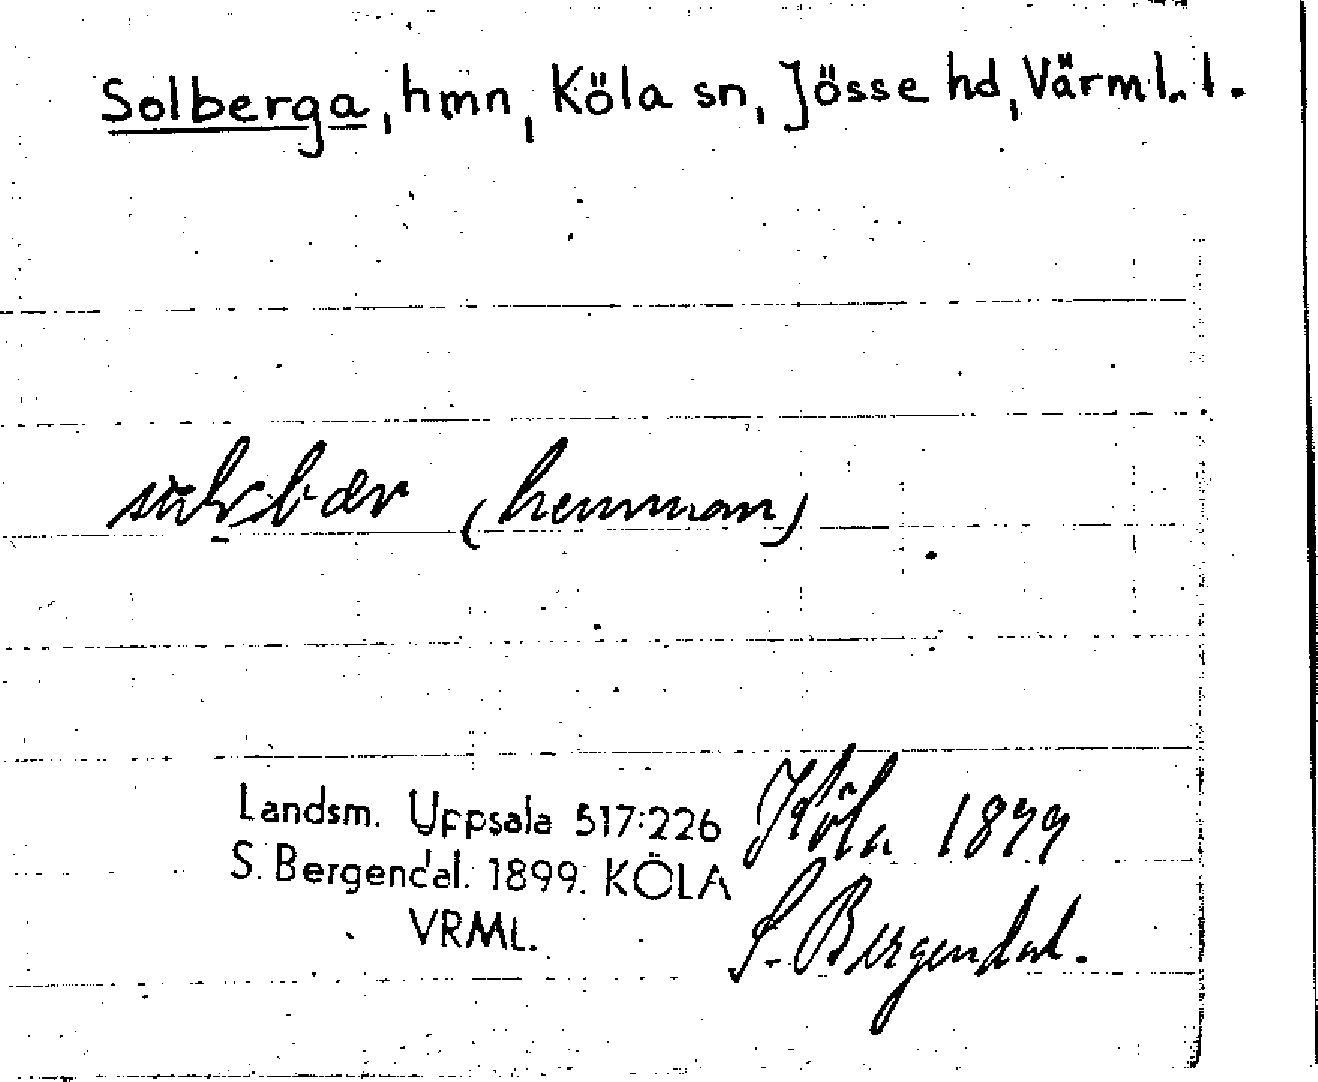 Solberga, hmn, Köla sn, Jösse hd, Värml. l.
(hemman)
Landsm. Uppsala 517:226
S. Bergendal. 1899. KÖLA
VRML.
Köla 1899
S. Bergendal.